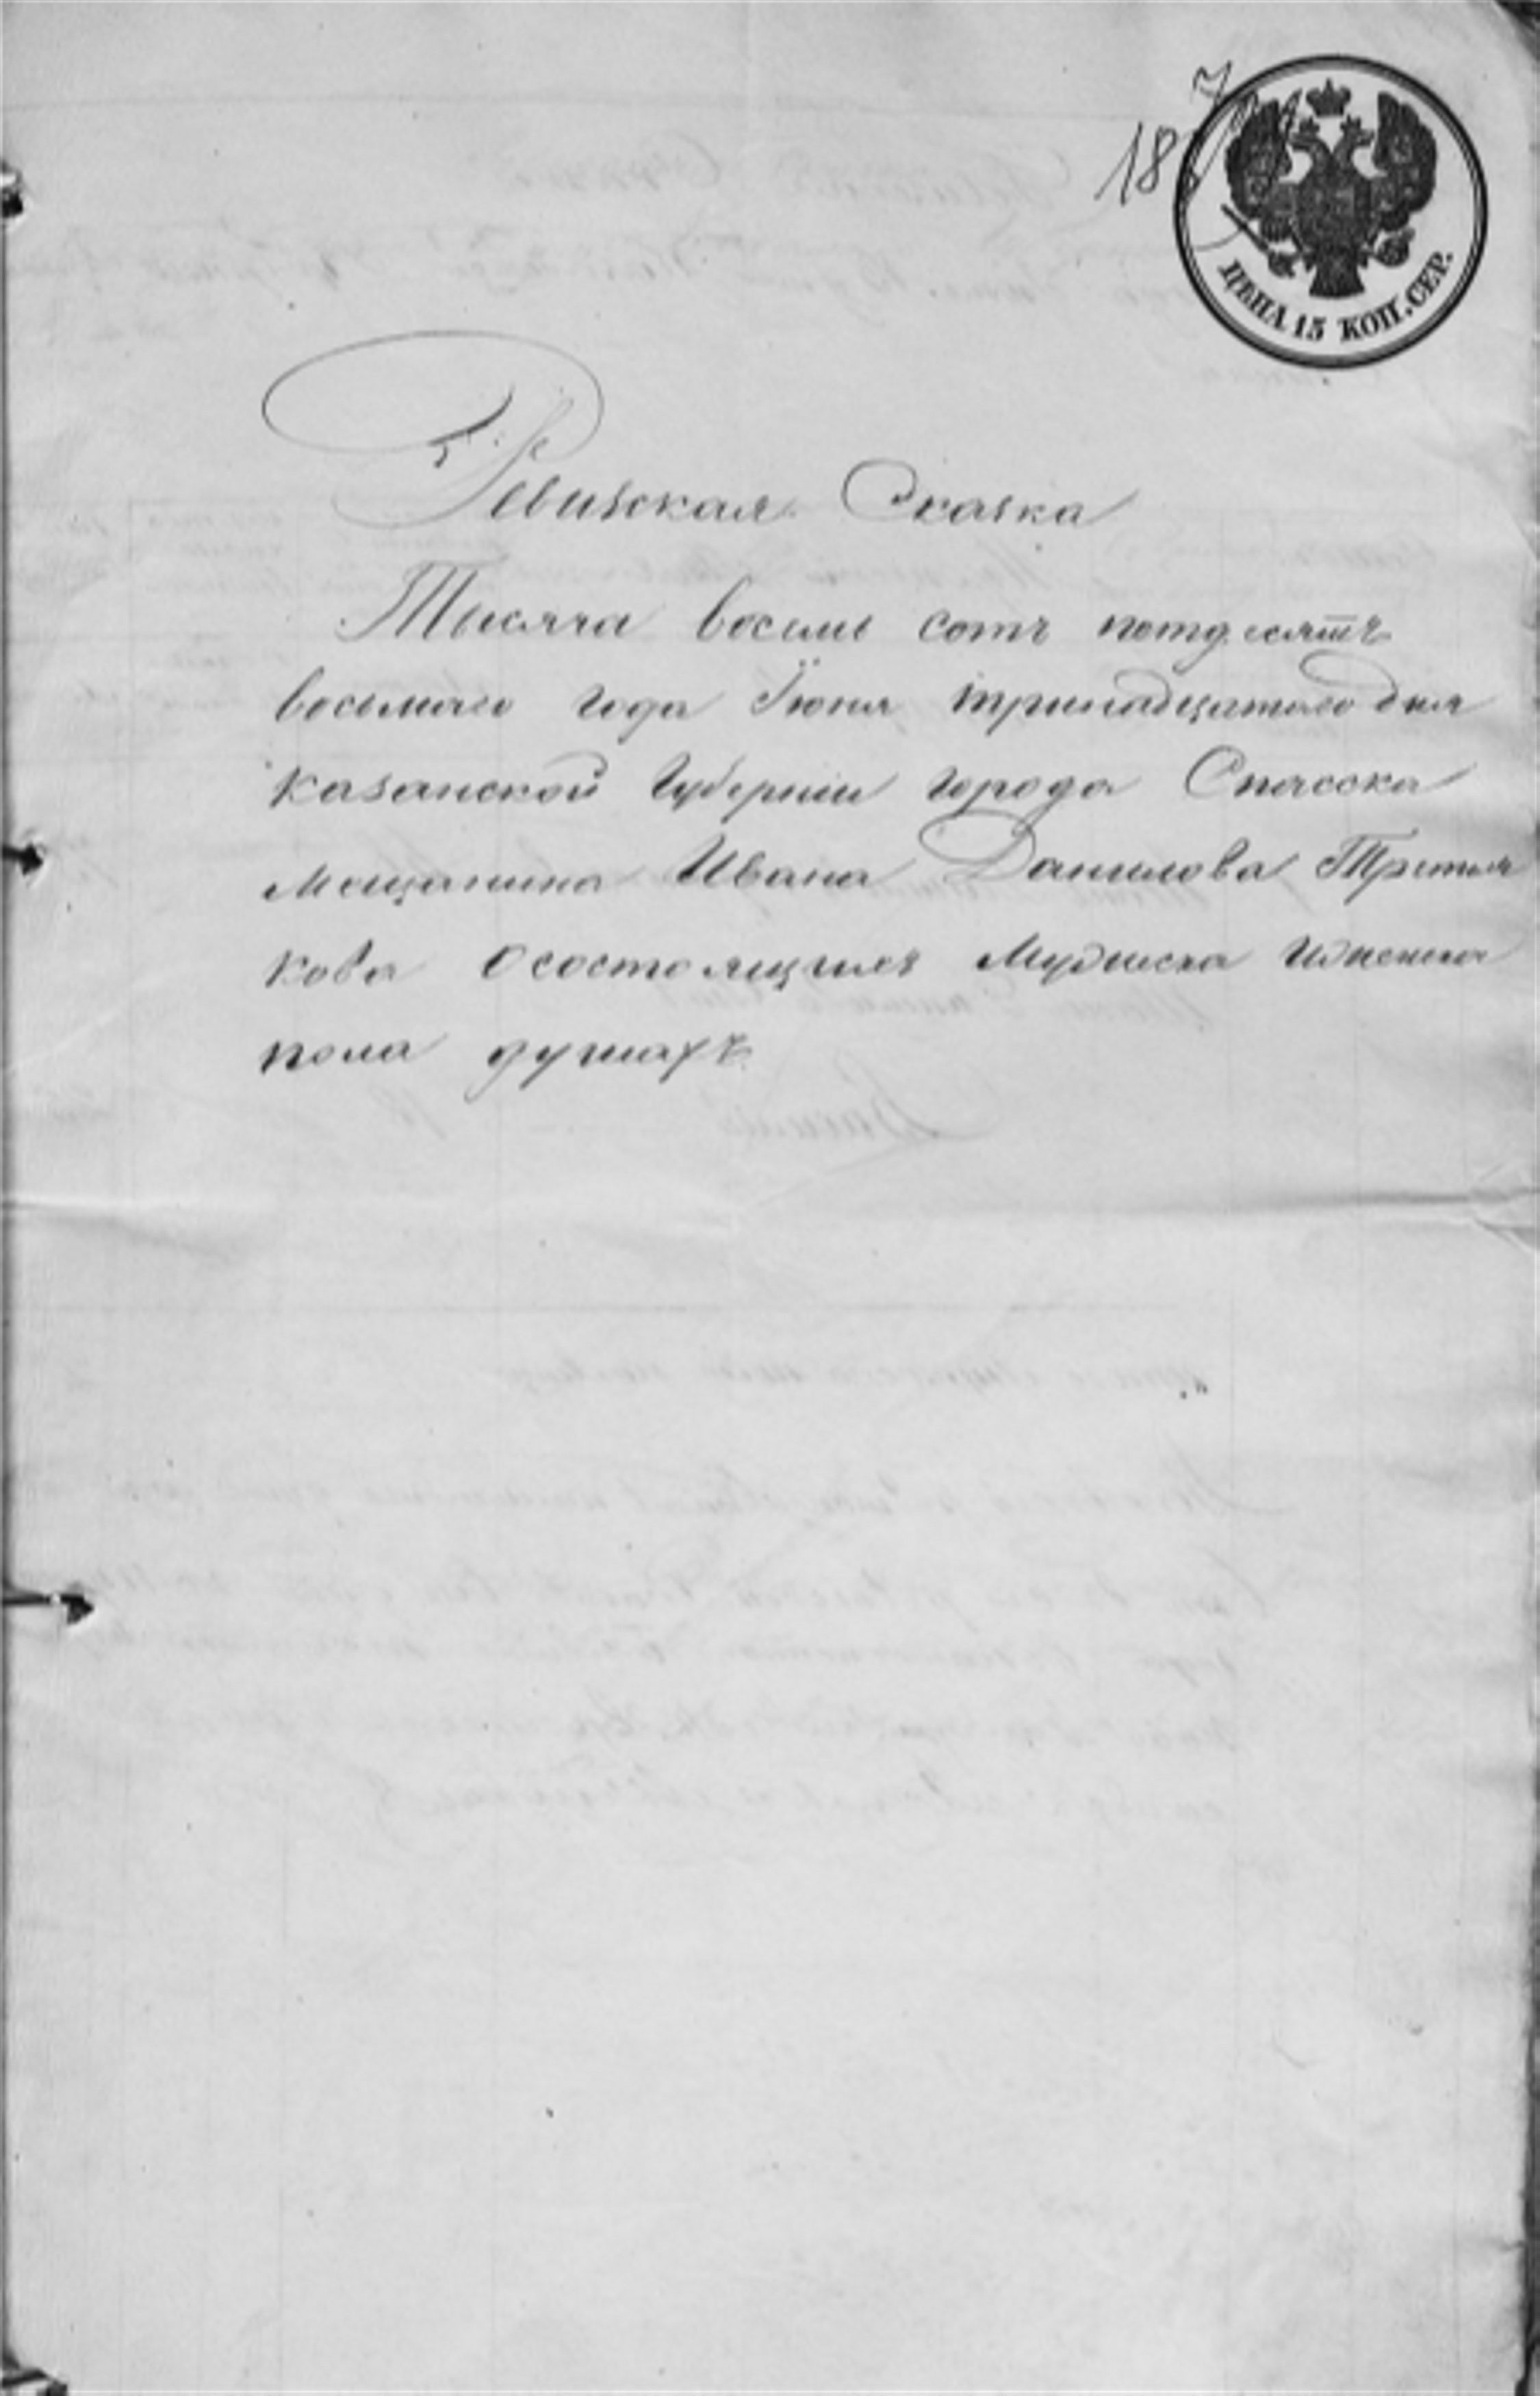 ЦѢНА 15 КОП. СЕР.
Ревизская Сказка
Тысяча восемь сотъ пятдесятъ
восьмаго года Іюня тринадцатаго дня
Казанской Губерніи города Спасска
мещанина Ивана Данилова Третья
кова о состоящихъ мужеска и женска
пола душахъ